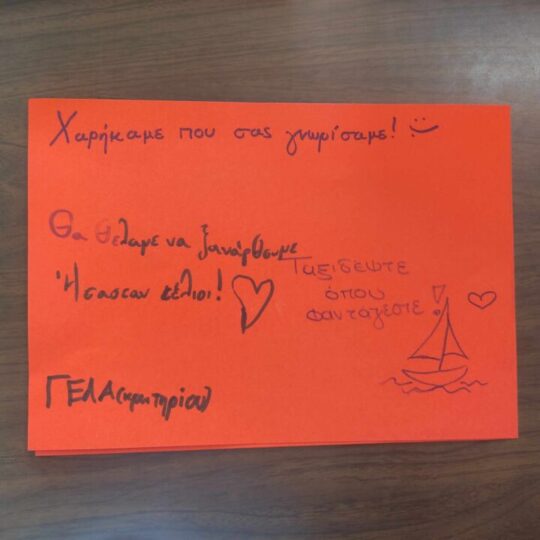 Χαρήκαμε που σας γνωρίσαμε! :)
Θα θέλαμε να ξανάρθουμε
Ήσασταν τέλειοι!
Ταξιδεψτε
όπου
φανταζεστε!
ΓΕΛ Α(κρωτηρίου)